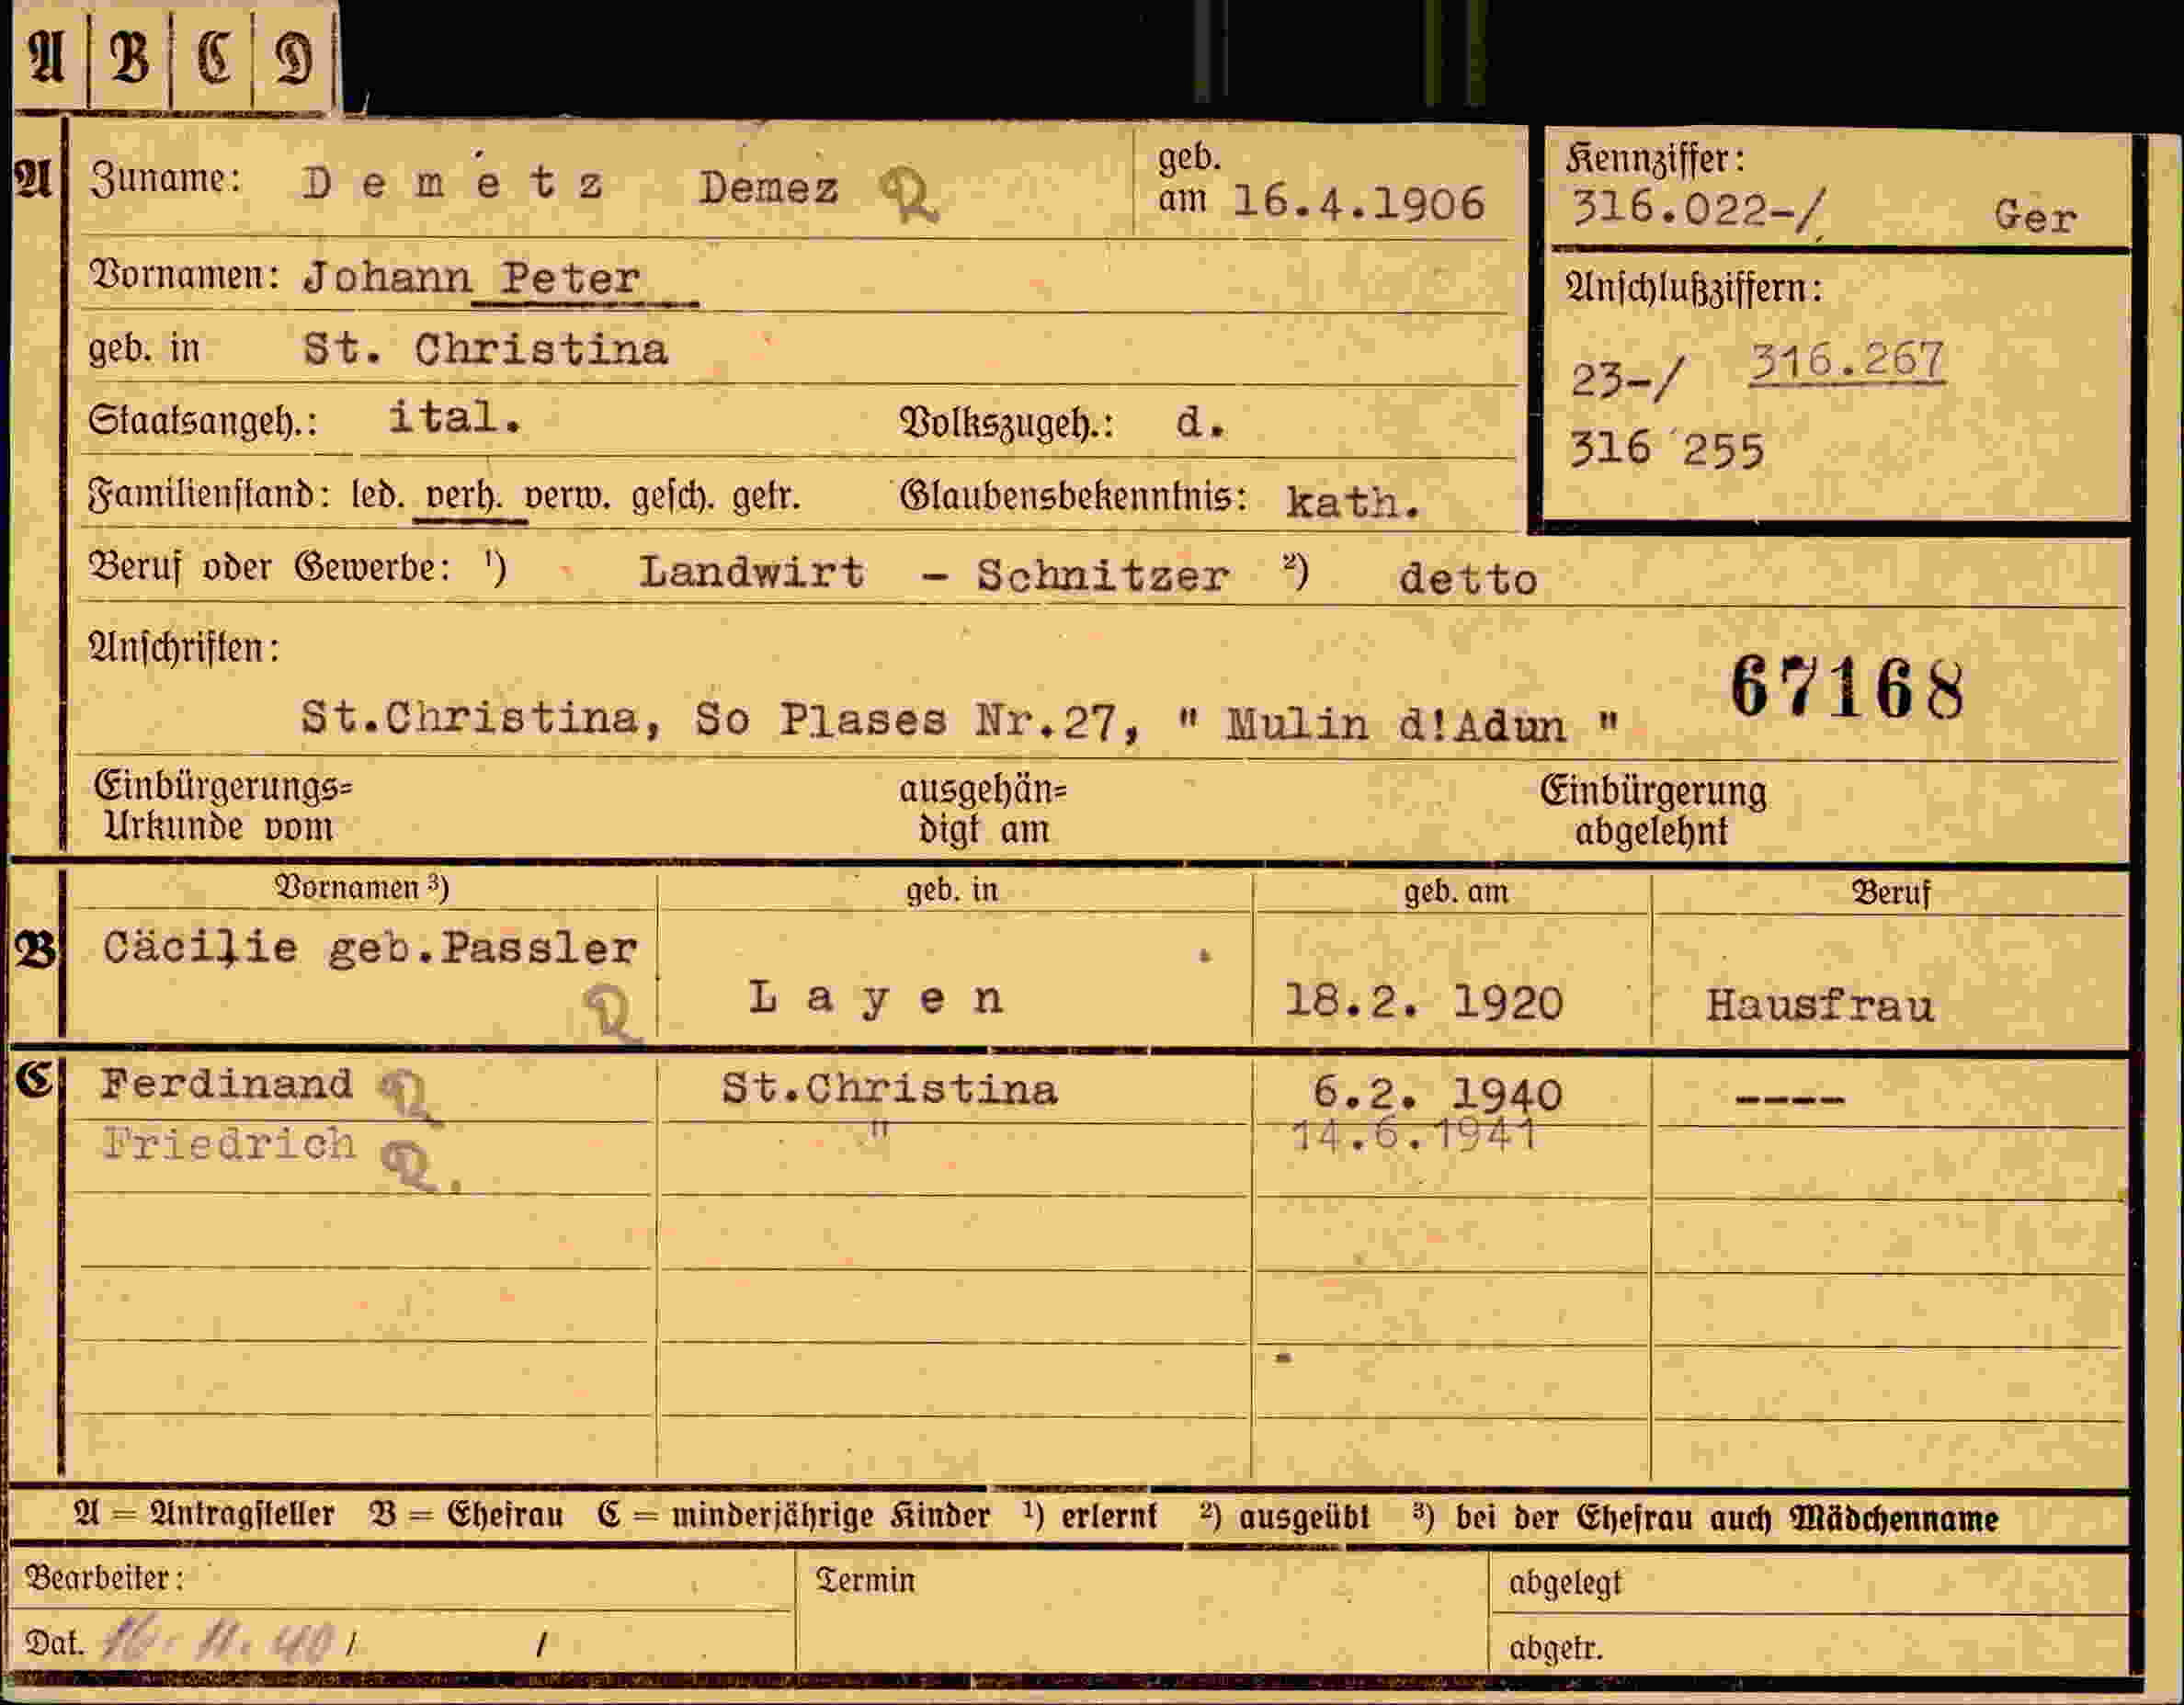 A B C D
A Zuname: Demetz Demez
geb. am 16.4.1906
Kennziffer: 316.022-/ Ger
Vornamen: Johann Peter
Anschlußziffern:
geb. in St. Christina
23-/ 316.267
Staatsangeh.: ital. Volkszugeh.: d.
316 255
Familienstand: led. verh. verw. gesch. getr. Glaubensbekenntnis: kath.
Beruf oder Gewerbe: ¹) Landwirt - Schnitzer ²) detto
Anschriften:
67168
St.Christina, So Plases Nr.27, " Mulin d!Adun "
Einbürgerungs= ausgehän= Einbürgerung
Urkunde vom digt am abgelehnt
Vornamen ³) geb. in geb. am Beruf
B Cäcilie geb.Passler
Layen 18.2. 1920 Hausfrau
C Ferdinand St.Christina 6.2. 1940 ----
Friedrich " 14.6.1941
A = Antragsteller B = Ehefrau C = minderjährige Kinder ¹) erlernt ²) ausgeübt ³) bei der Ehefrau auch Mädchenname
Bearbeiter: Termin abgelegt
Dat. 16. 11. 40 / / abgetr.